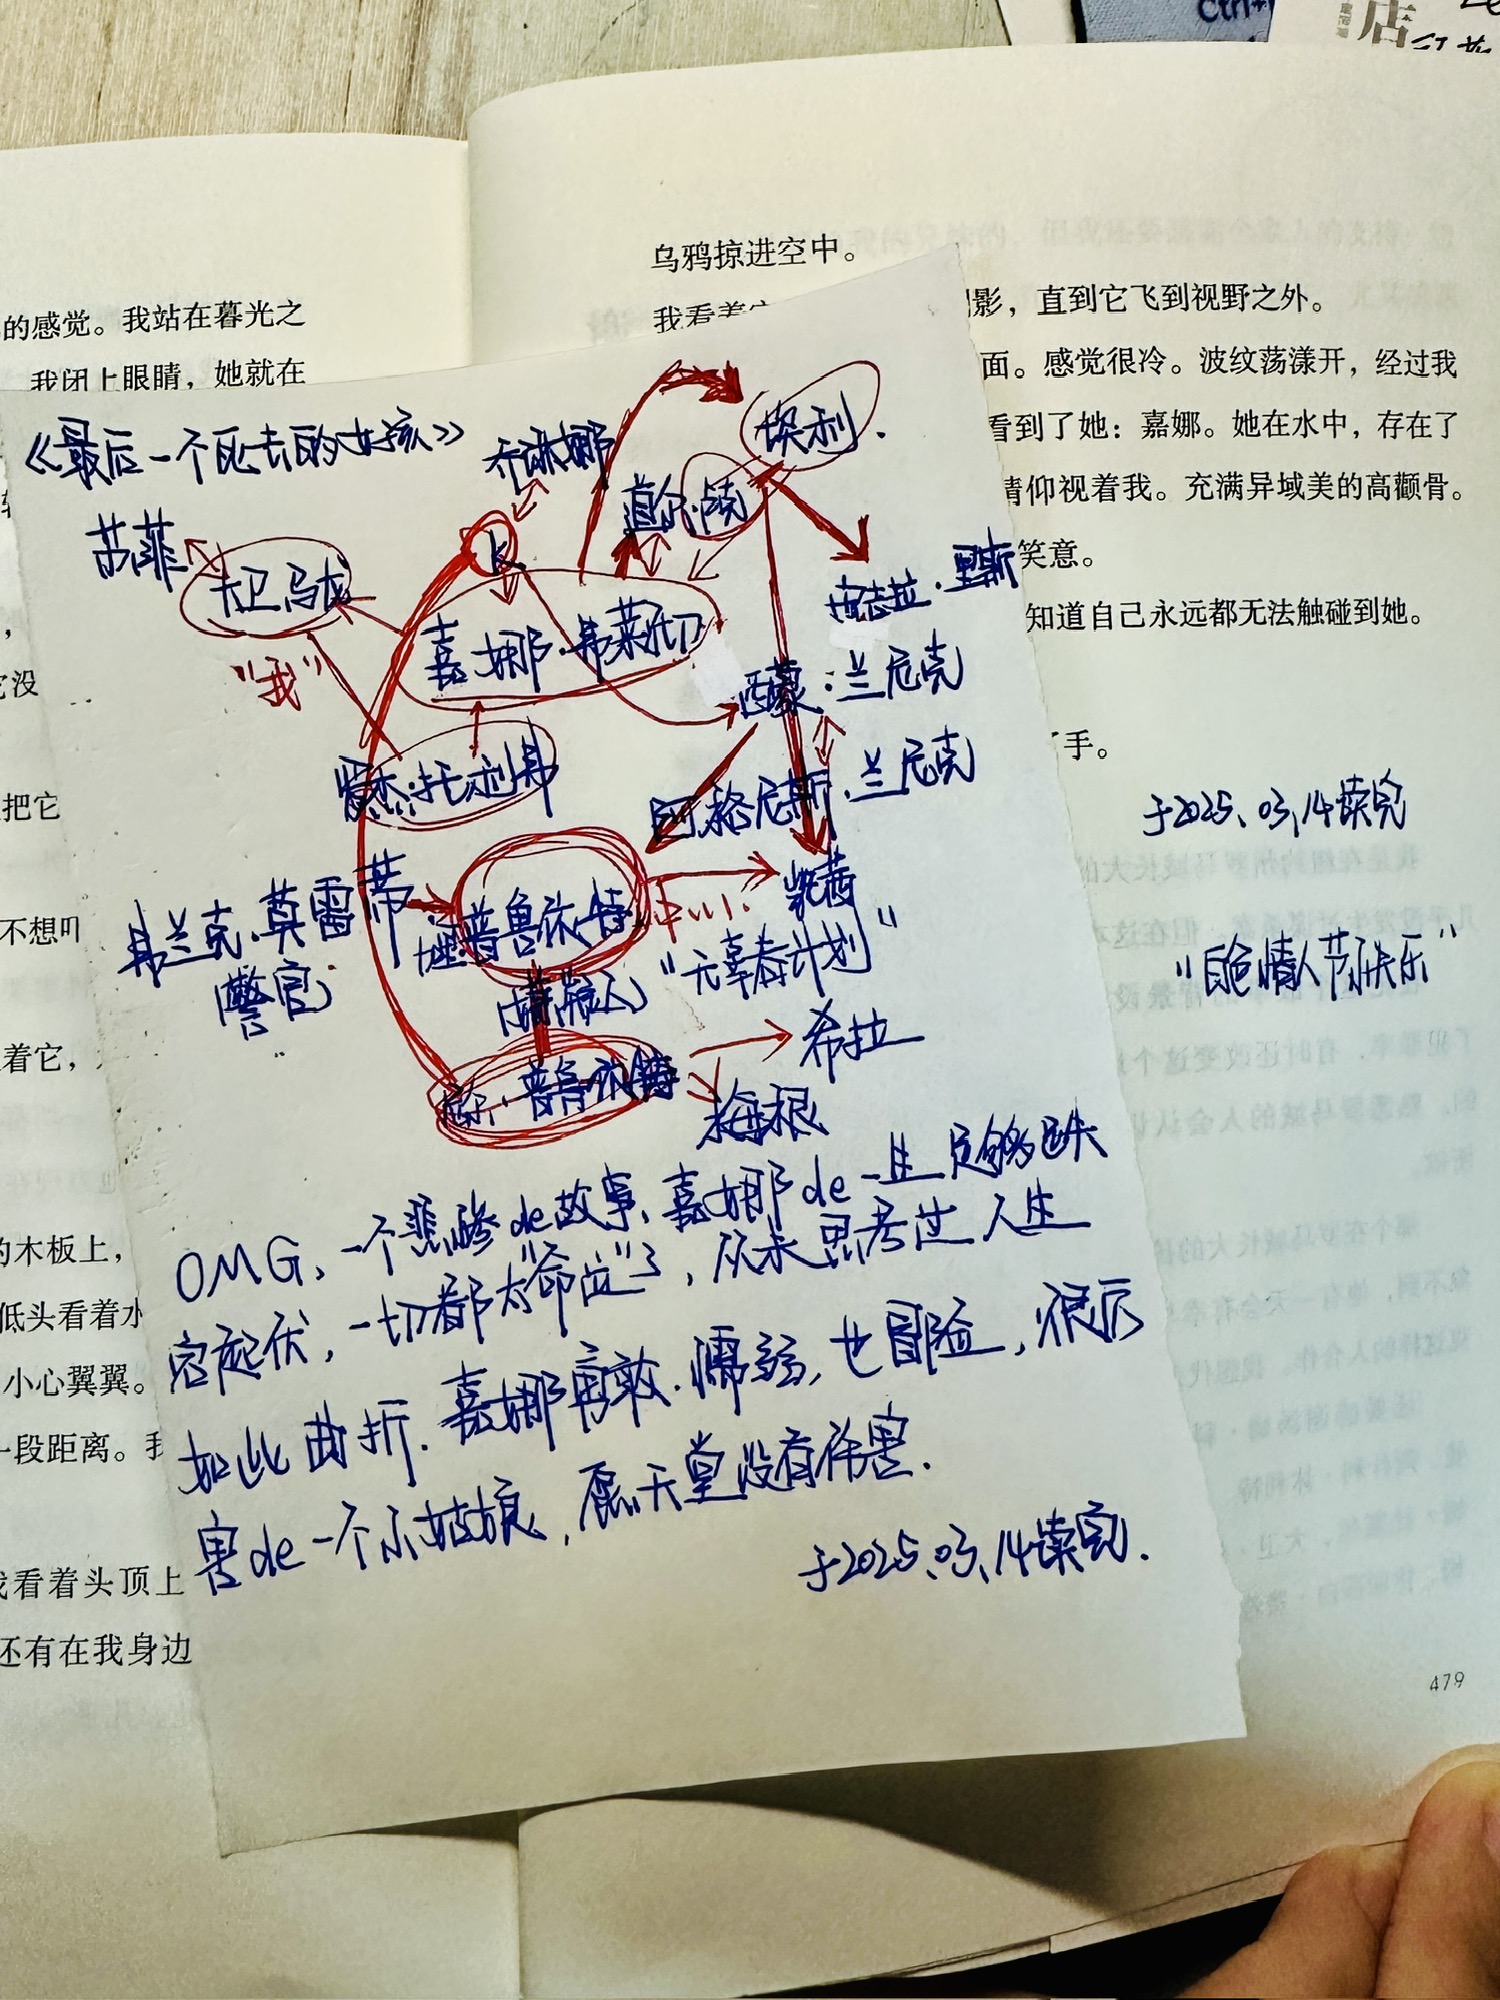 Ctrl+
店
的感觉。我站在暮光之
我闭上眼睛，她就在
它没
把它
不想叫
着它，
的木板上，
低头看着水
小心翼翼。
一段距离。我
我看着头顶上
还有在我身边
乌鸦掠进空中。
我看着它
影，直到它飞到视野之外。
面。感觉很冷。波纹荡漾开，经过我
看到了她：嘉娜。她在水中，存在了
睛仰视着我。充满异域美的高颧骨。
笑意。
知道自己永远都无法触碰到她。
了手。
于2025.03.14读完
"白色情人节快乐"
479
《最后一个死去的女孩》
乔琳娜
埃利.
苏菲
K
直尔·
安吉拉·里斯
卡卫.马龙
嘉娜·弗莱切
"我"
西蒙·兰尼克
罗杰·托利弗
阿格尼斯·兰尼克
弗兰克.莫雷蒂
警官
普鲁伊特
凯茜
"无辜者计划"
普鲁伊特
希拉
梅根
OMG、一个悲惨de故事、嘉娜de一生足够跌
宕起伏，一切都太"命定"了，从未思考过人生
如此曲折.嘉娜勇敢.懦弱，也冒险，很厉
害de一个小姑娘，愿天堂没有伤害.
于2025.03.14读完.